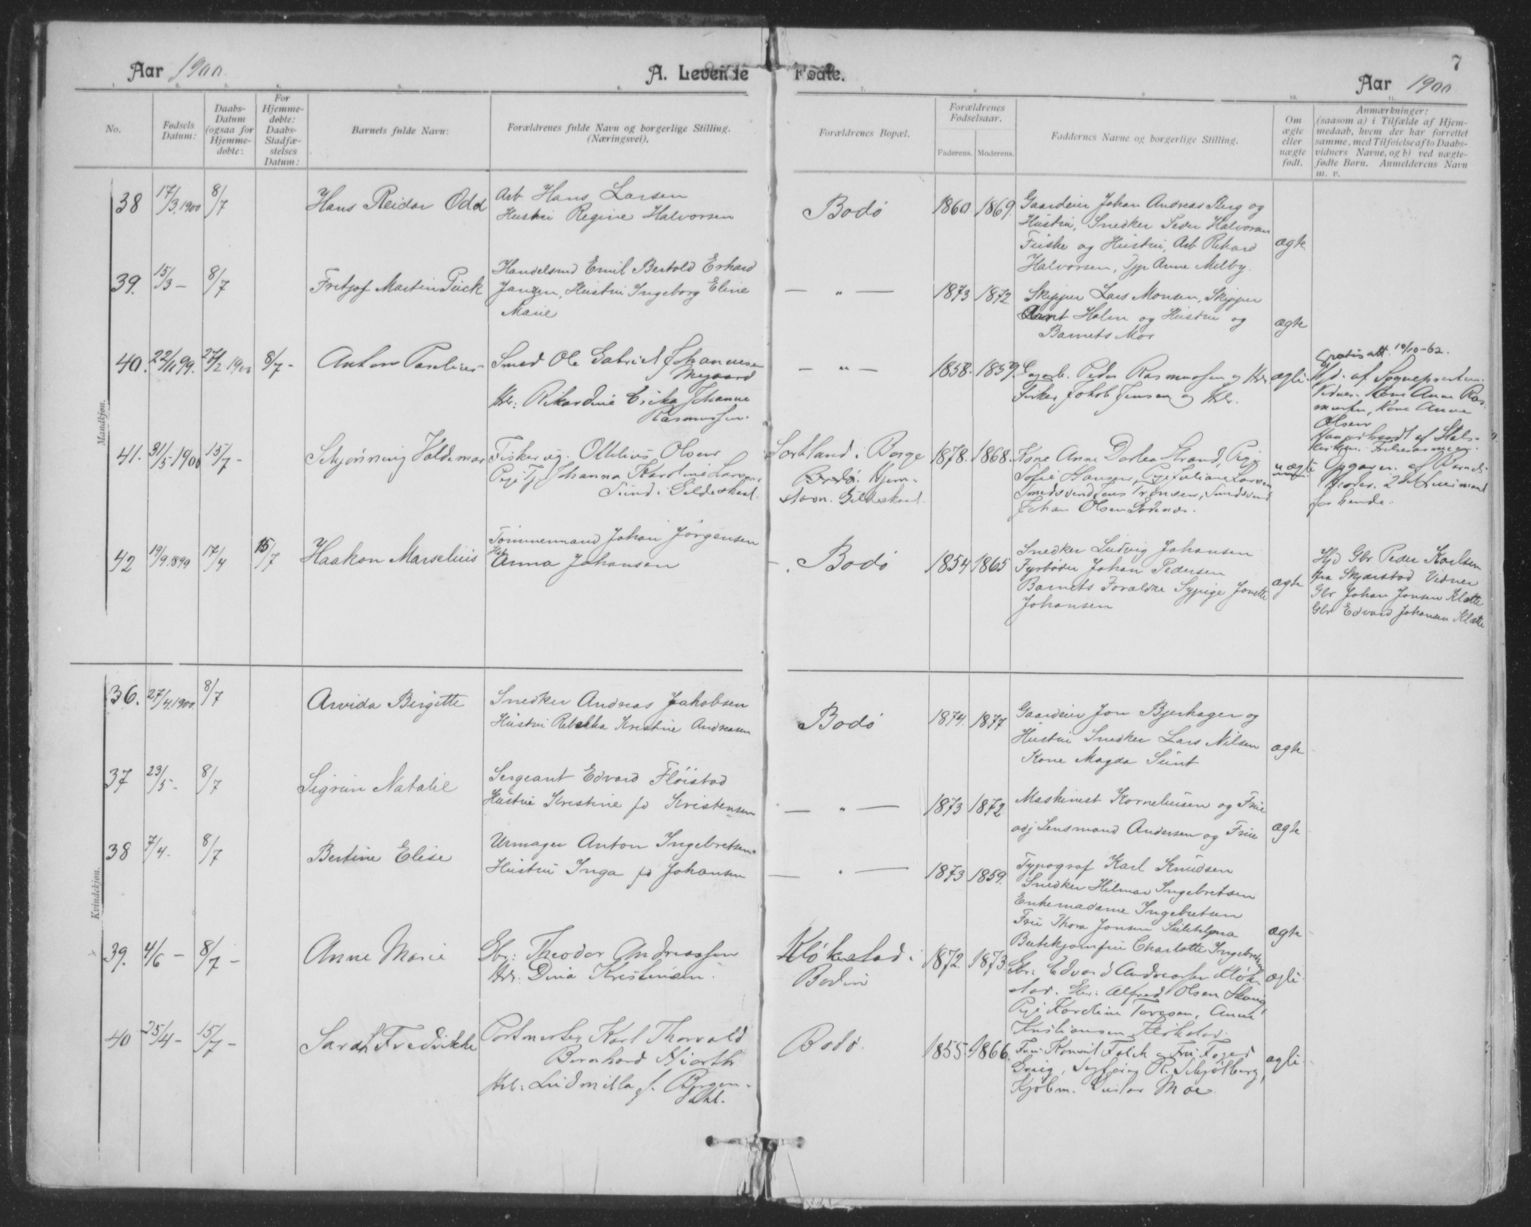 Aar 1900.
A. Levende Fødte.
7
Aar 1900
No.
Fødsels Datum:
Daabs-Datum (ogsaa for Hjemmedøbte:
For Hjemmedøbte: Daabs-Stadfæstelses Datum:
Barnets fulde Navn:
Forældrenes fulde Navn og borgerlige Stilling. (Næringsvei).
Forældrenes Bopæl.
Forældrenes Fødselsaar.
Faderens. Moderens.
Faddernes Navne og borgerlige Stilling.
Om ægte eller uægte født.
Anmærkninger:
(saasom a) i Tilfælde af Hjemmedaab, hvem der har forrettet samme, med Tilføielse af to Daabsvidners Navne, og b) ved uægtefødte Børn. Anmelderens Navn m. v.
Mandkjøn.
38 17/3 1900 8/7 Hans Reidar Odd
Arb Hans Larsen
Hustru Regine Halvorsen
Bodø 1860 1869
Gaardeier Johan Andreas Berg og
Hustru, Snedker Peder Halvorsen
Fiske og Hustru, Arb Rikard
Halvorsen, Anne Melby.
ægte
39. 15/3 — 8/7 Fritjof Martin
Handelsmd Emil Bertold Erhard
Jansen, Hustru Ingeborg Eline
Marie
— " — 1873 1872
Skipper Lars Monsen, Skipper
Arnt Holm og Hustru og
Barnets Mor
ægte
40. 22/11 99. 27/2 1900 8/7 - Anton Paulius
Smed Ole Gabriel Johannesen
Hst: Rikardine Erika Johanne
Rasmussen.
— " — 1858. 1859.
Peder Rasmussen og Hst.
Fisker Jakob Jensen og Hst.
ægte
Hjd. af Sognepresten.
Vidner: Kone Anne Rasmussen, Kone Anna
Olsen
41. 31/5 1900 15/7 - Schjønning Valdemar
Fisker ug. Othlius Olsen
Pige Johanna Karoline Larsen,
Sund i Gildeskaal.
Sortland i
Bodø. Hjemstavn. Gildeskaal
1878. 1868.
Kone Anne Dortea Strand, Pige
Sofie Hansen, Pige Juliane Larsen
Smedsvend Jens Trønsen, Smedsvend
Johan Olsen
uægte
42 19/9 1899 17/4 15/7 Haakon Marselius
Tømmermand Johan Jørgensen
Hst Anna Johansen
Bodø 1854 1865
Snedker Ludvig Johansen
Fyrbøder Johan Pedersen
Barnets Forældre Sypige Jonette
Johansen
ægte
Hjd Gbr Peder Karlsen
fra Skjærstad Vidner
Gbr Johan Jonsen Klætte
Gbr Edvard Johansen Klætte
Kvindekjøn.
36. 27/4 1900 8/7 Arvida Birgitte
Snedker Andreas Jakobsen
Hustru Rebekka Kristine Andreasen
Bodø 1874. 1877
Gaardeier Jon Bjerhager og
Hustru Snedker Lars Nilsen
Kone Magda Sunt
ægte
37 23/5 - 8/7 Sigrun Natalie
Sergeant Edvard Fløistad
Hustru Kristine fd Kristensen
— " — 1873 1872
Maskinist Korneliusen og Frue
og Lensmand Andersen og Frue
ægte
38 7/4. 8/7 Bertine Elise
Urmager Anton Ingebretsen
Hustru Inga fd Johansen
— " — 1873 1859.
Typograf Karl Knudsen
Snedker Hilmar Ingebretsen
Enkemadame Ingebretsen
Frue Thora Jensen Sulitelma
Butikjomfru Charlotte Ingebretsen
ægte
39. 4/6 — 8/7 — Anne Marie
Gbr: Theodor Andreassen
Hst. Dina Kristensen
Kløkstad i
Bodin
1872. 1873.
Gbr. Edvard Andreassen Kløkstad. Gbr: Alfred Olsen Skaug,
Pige Karoline Toresen, Anna
Kristiansen
ægte.
40 25/4 — 15/7 — Sarah Fredrikke
Portmester Karl Thorvald
Bernhard Hjorth
Hst: Ludmilla f. Bergendahl.
Bodø. 1855. 1866.
Frue Konsul Falch, Frue Foged
Grieg, R. Schjølberg,
Kjøbm. Gustav Moe
ægte